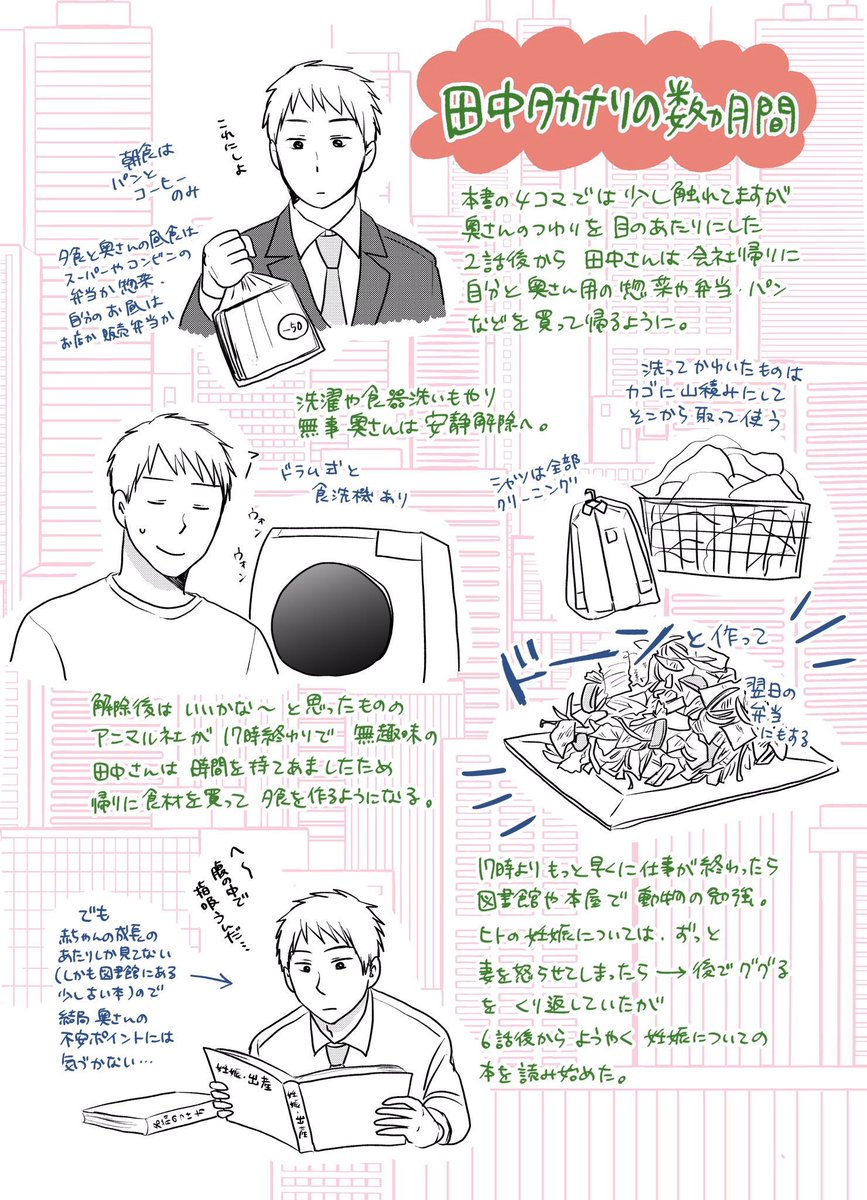 田中タカナリの数ヵ月間
これにしよ
朝食は
パンと
コーヒー
のみ
夕食と奥さんの昼食は
スーパーやコンビニの
弁当か惣菜.
自分のお昼は
お店か販売弁当か
-50
本書の4コマでは少し触れてますが
奥さんのつわりを目のあたりにした
2話後から 田中さんは会社帰りに
自分と奥さん用の惣菜や弁当・パン
などを買って帰るように。
洗濯や食器洗いもやり
無事奥さんは安静解除へ。
洗ってかわいたものは
カゴに山積みにして
そこから取って使う
ドラム式と
食洗機あり
ウォン
ウォン
シャツは全部
クリーニング
ドーンと作って
翌日の
弁当
にもする
解除後はいいかな〜と思ったものの
アニマル社が17時終わりで無趣味の
田中さんは時間を持てあましたため
帰りに食材を買って夕食を作るようになる。
へ〜
腹の中で
指吸うんだ…
でも
赤ちゃんの成長の
あたりしか見てない
(しかも図書館にある
少し古い本)ので
結局奥さんの
不安ポイントには
気づかない…
妊娠・出産
妊娠・出産
17時よりもっと早くに仕事が終わったら
図書館や本屋で動物の勉強。
ヒトの妊娠については、ずっと
妻を怒らせてしまったら→後でググる
をくり返していたが
6話後からようやく妊娠についての
本を読み始めた。